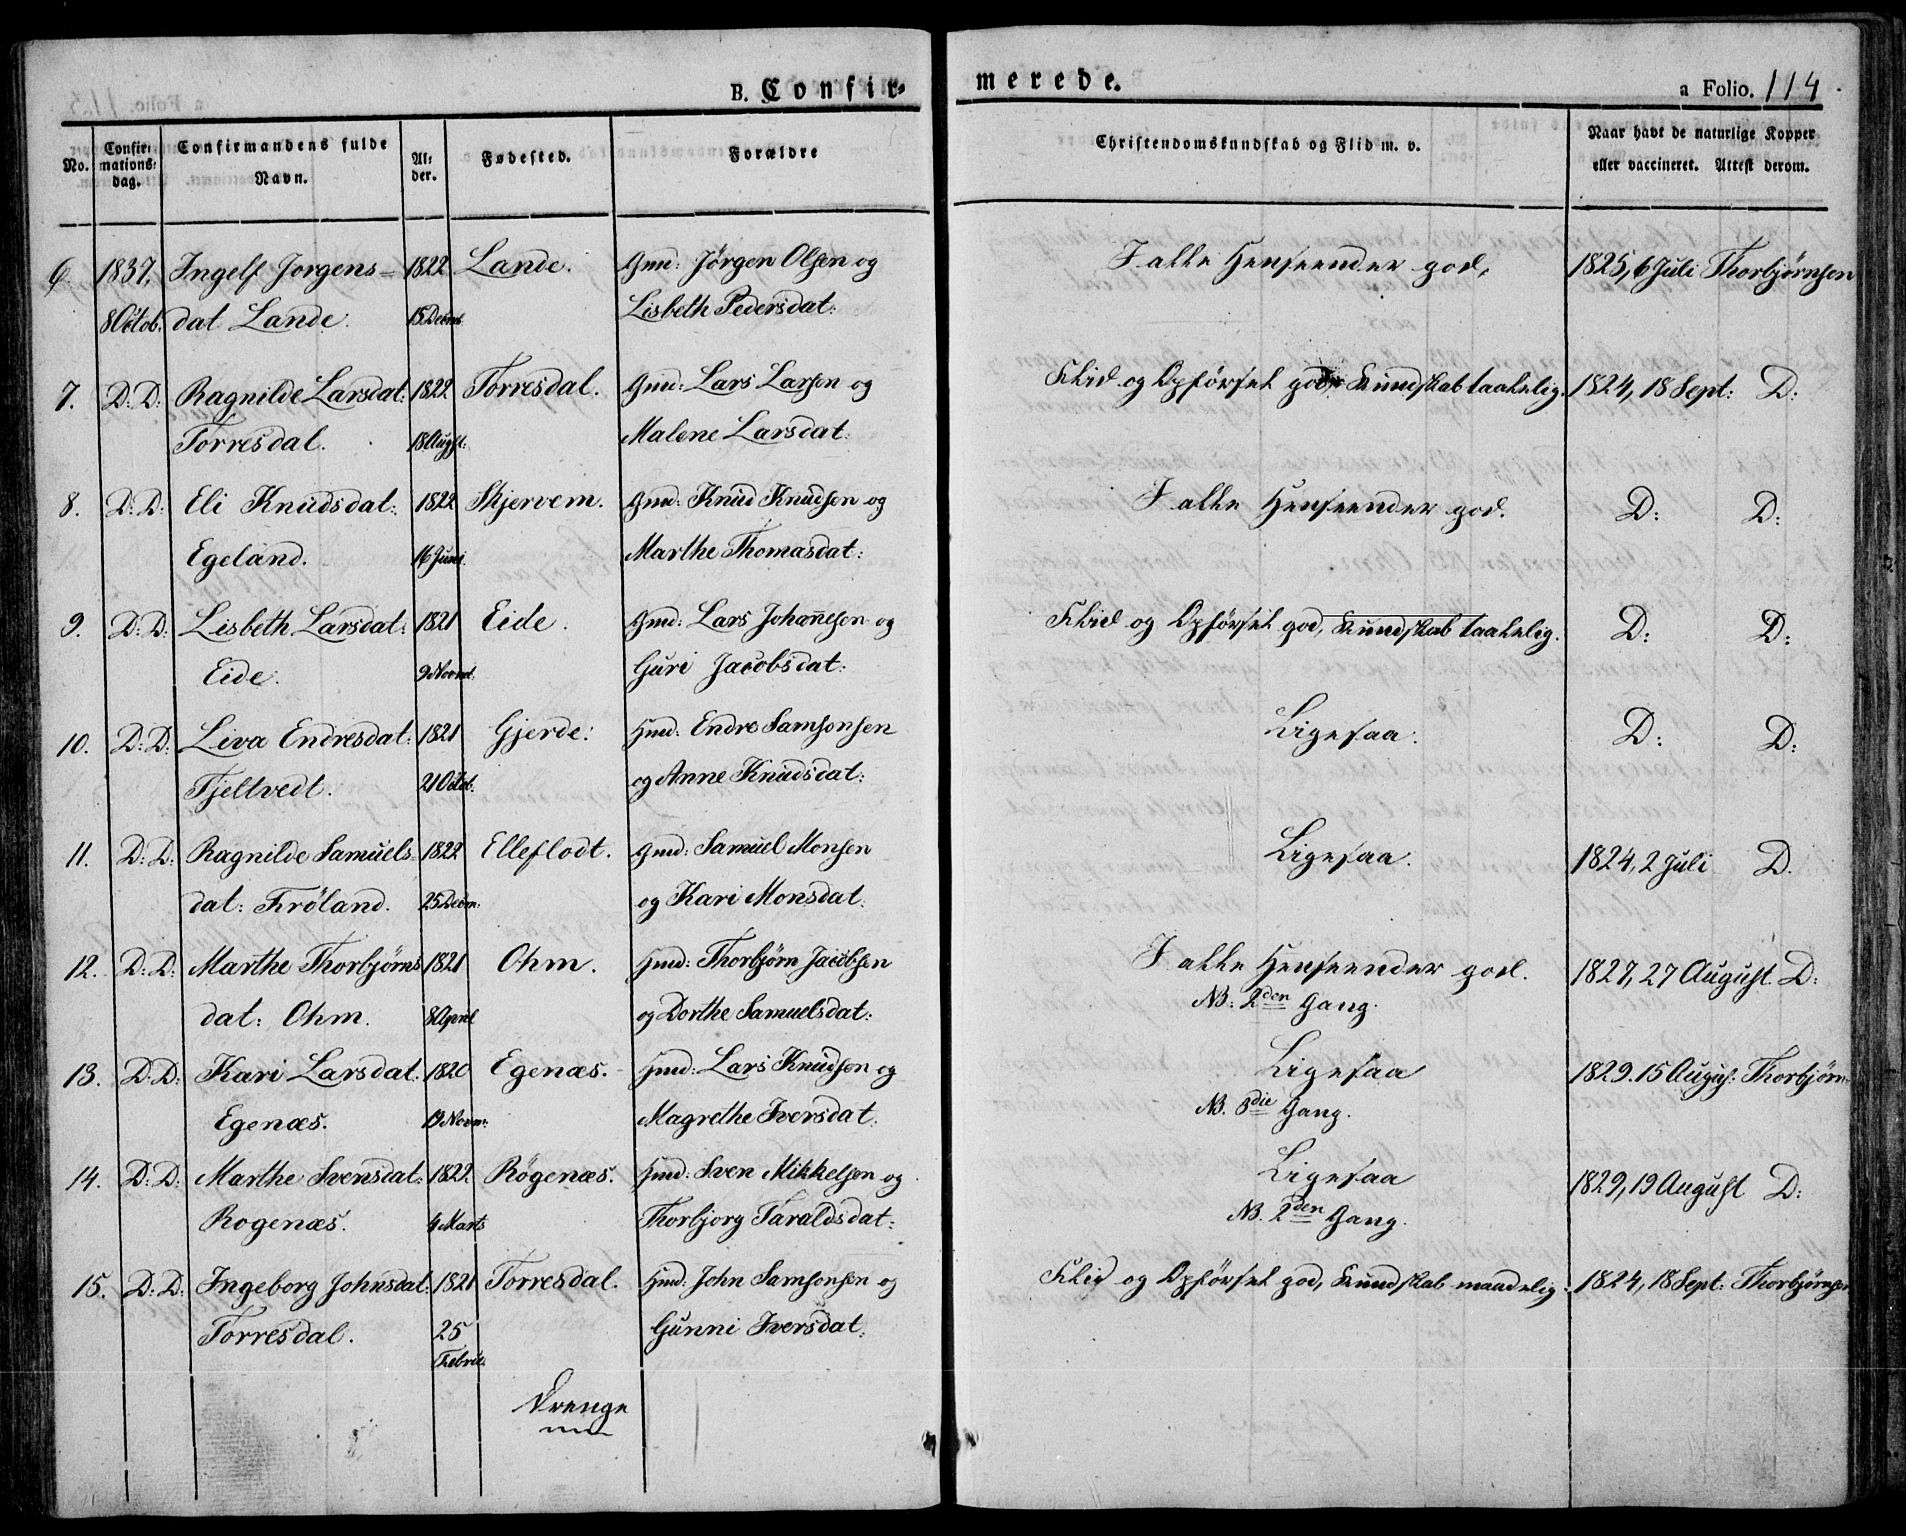 B. Confir-
merede.
a Folio. 114
No.
Confir-
mations-
dag.
Confirmandens fulde
Navn.
Al-
der.
Fødested.
Forældre
Christendomskundskab og Flid m. v.
Naar havt de naturlige Kopper
eller vaccineret. Attest derom.
6. 1837, Ingelf Jorgens- 1822 Lande. Gmd: Jørgen Olsen og I alle Henseender god, 1825, 6 Juli Thorbjørnsen
8 Octob. dat Lande. 15 Decmb Lisbeth Pedersdat:
7. D: D: Ragnilde Larsdat: 1822 Torresdal. Gmd: Lars Larsen og Flid og Opførsel god, Kundskab taalelig. 1824, 18 Sept: D:
Torresdal. 18 Augst: Malene Larsdat:
8. D: D: Eli Knudsdat: 1822 Skjervem. Gmd: Knud Knudsen og I alle Henseender god. D: D:
Egeland. 16 Juni. Marthe Thomasdat:
9. D: D: Lisbeth Larsdat: 1821 Eide. Gmd: Lars Johannesen og Flid og Opførsel god, Kundskab taalelig. D: D:
Eide. 9 Novmb. Guri Jacobsdat:
10. D: D: Liva Endresdat: 1821 Gjerde: Hmd: Endre Samsonsen Ligesaa. D: D:
Fjeltvedt. 21 Octob. og Anne Knudsdat:
11. D: D: Ragnilde Samuels- 1822 Elleflodt. Gmd: Samuel Monsen Ligesaa. 1824, 2 Juli D.
dat: Frøland. 25 Decm: og Kari Monsdat:
12. D: D: Marthe Thorbjørns 1821 Ohm. Hmd: Thorbjørn Jacobsen I alle Henseender god. 1827, 27 August. D:
dat: Ohm. 8 April og Dorthe Samuelsdat: NB: 2den Gang.
13. D: D: Kari Larsdat: 1820 Egenæs. Hmd: Lars Knudsen og Ligesaa 1829. 15 Augus: Thorbjørn-
Egenæs. 19 Novm: Magrethe Iversdat: NB. 3die Gang.
14. D: D: Marthe Svensdat: 1822 Røgenæs. Hmd: Sven Mikkelsen og Ligesaa 1829, 19 August D:
Rogenæs. 4 Marts Thorbjorg Taraldsdat: NB. 2den Gang.
15. D: D: Ingeborg Johnsdat: 1821 Torresdal. Hmd: John Samsonsen og Flid og Opførsel god, Kundskab maadelig. 1824, 18 Sept: Thorbjørnsen
Torresdal. 25 Gunni Iversdat:
Febru.
Drenge